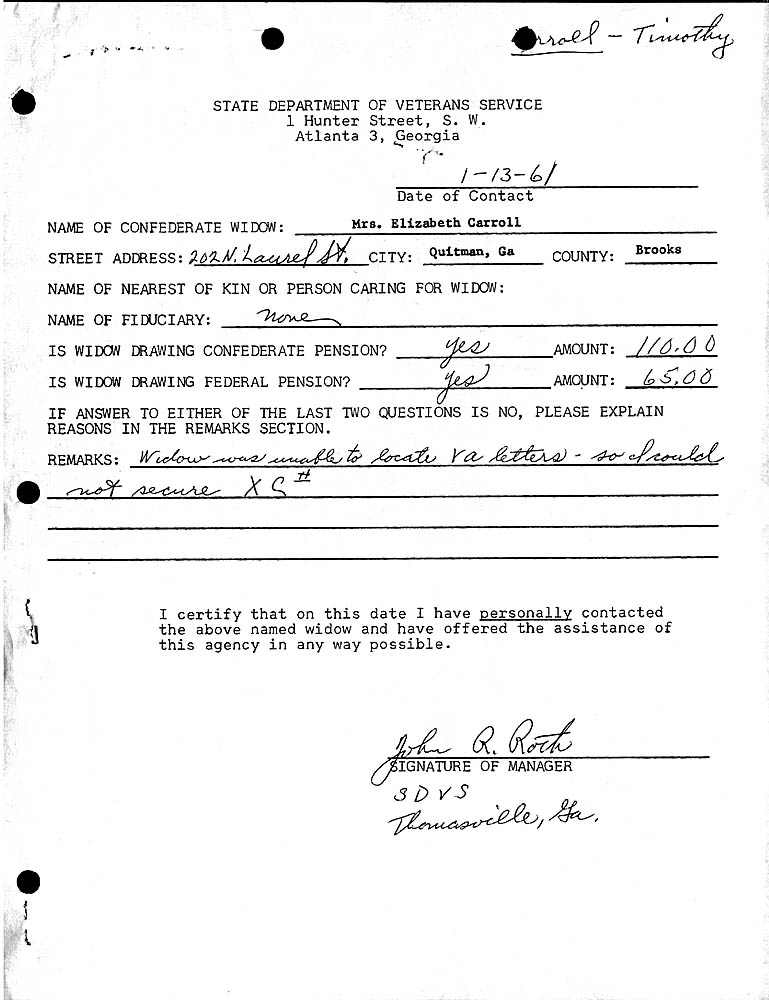 Carroll - Timothy
STATE DEPARTMENT OF VETERANS SERVICE
1 Hunter Street, S. W.
Atlanta 3, Georgia
1-13-61
Date of Contact
NAME OF CONFEDERATE WIDOW: Mrs. Elizabeth Carroll
STREET ADDRESS: 202 N. Laurel St. CITY: Quitman, Ga COUNTY: Brooks
NAME OF NEAREST OF KIN OR PERSON CARING FOR WIDOW:
NAME OF FIDUCIARY: None
IS WIDOW DRAWING CONFEDERATE PENSION? Yes AMOUNT: 110.00
IS WIDOW DRAWING FEDERAL PENSION? Yes AMOUNT: 65.00
IF ANSWER TO EITHER OF THE LAST TWO QUESTIONS IS NO, PLEASE EXPLAIN
REASONS IN THE REMARKS SECTION.
REMARKS: Widow was unable to locate Va letters - so I could
not secure X C #
I certify that on this date I have personally contacted
the above named widow and have offered the assistance of
this agency in any way possible.
John R. Roth
SIGNATURE OF MANAGER
SDVS
Thomasville, Ga.